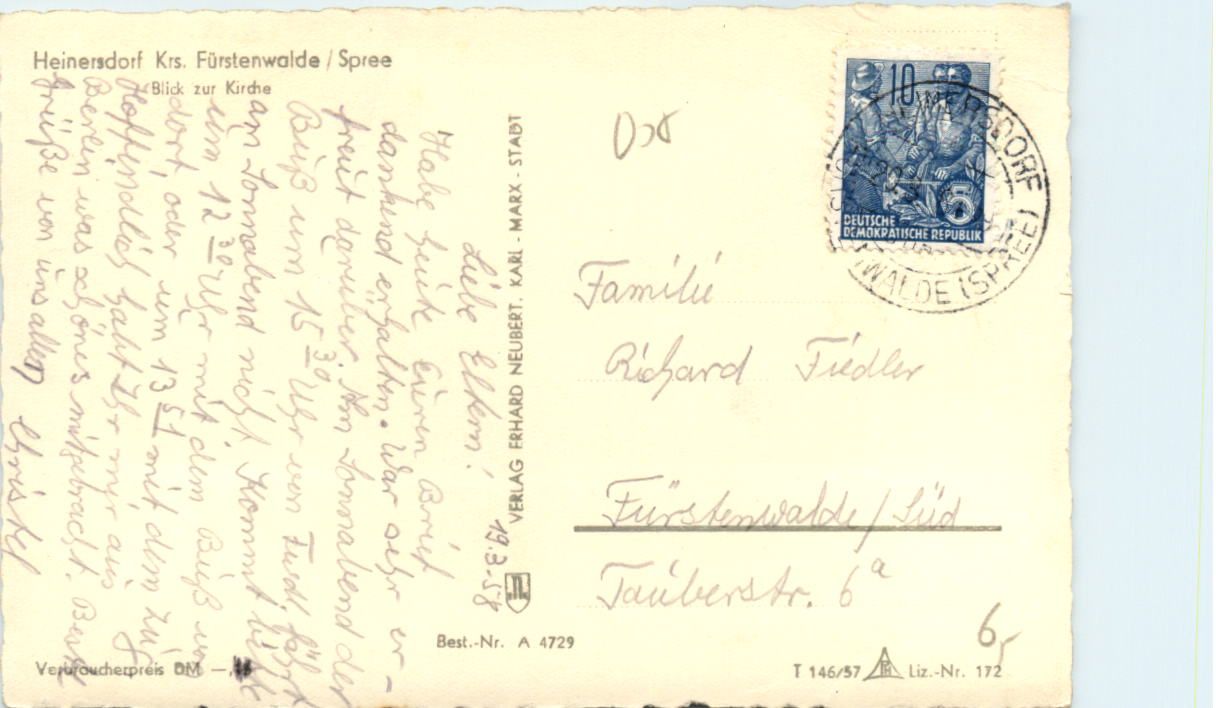 Heinersdorf Krs. Fürstenwalde/Spree
Blick zur Kirche
19.3.58
Liebe Eltern!
Habe heute Euren Brief
dankend erhalten. War sehr er-
freut darüber. Am Sonnabend der
Buß um 15 30 Uhr von Fwd. fährt
am Sonnabend nicht. Kommt bitte
um 12 30 Uhr mit dem Buß von
dort, oder um 13 51 mit dem Zug
Hoffendlich habt Ihr mir aus
Berlin was schönes mitgebracht.
Grüße von uns allen Christel
VERLAG ERHARD NEUBERT, KARL-MARX-STADT
10
5
DEUTSCHE
DEMOKRATISCHE REPUBLIK
WALDE (SPREE)
Familie
Richard Fiedler
Fürstenwalde/Süd
Tauberstr. 6a
6,-
Best.-Nr. A 4729
Verbraucherpreis DM
T 146/57 Liz.-Nr. 172